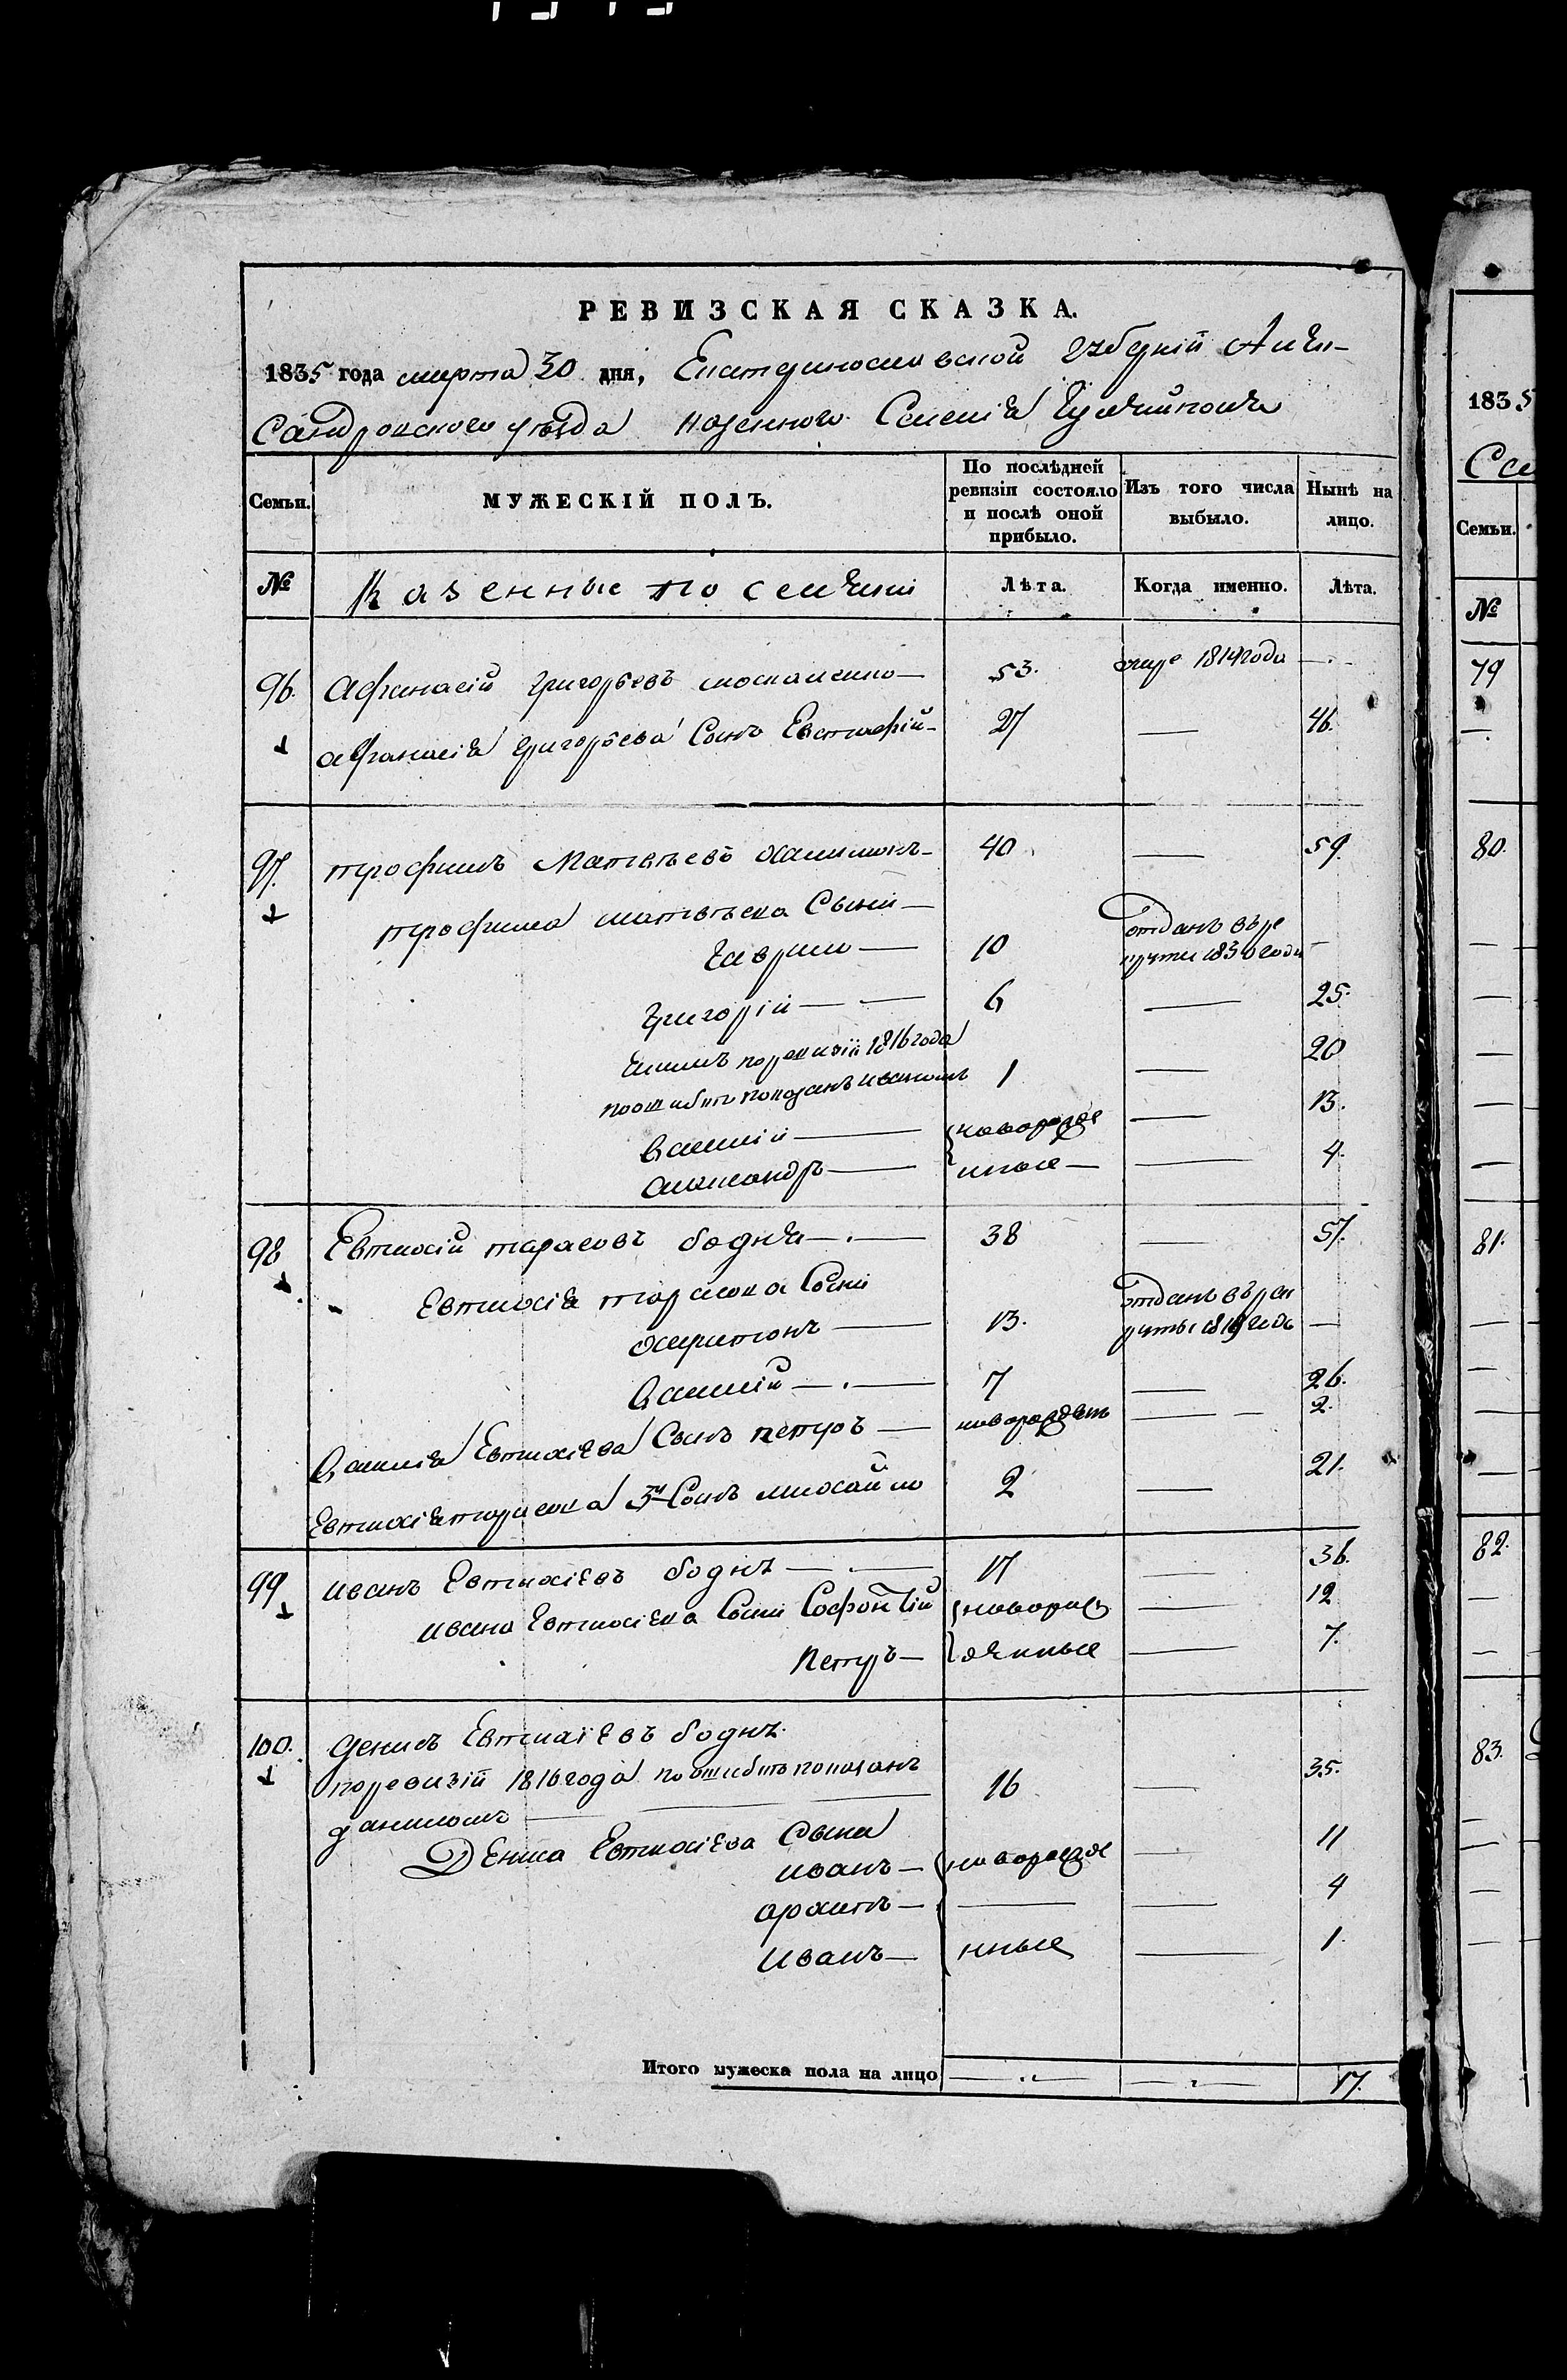 РЕВИЗСКАЯ СКАЗКА.
1835 года марта 30 дня, Екатеринославской губерніи Алек-
сандровского уезда казенного селенія Гуляйполя
Семьи. МУЖЕСКІЙ ПОЛЪ. По послѣдней ревизіи состояло и послѣ оной прибыло. Изъ того числа выбыло. Нынѣ на лицо.
№ Казенные поселяне Лѣта. Когда именно. Лѣта.
96. Афанасій Григорьевъ Москаленко — 53. 1819 года —
Афанасія Григорьева сынъ Евстафій — 27 — 46.
97. Трофимъ Матвѣевъ — 40 — 59.
Трофима Матвѣева сыни —
Гаврило — 10 отданъ въ ре
круты 1830 года —
Григорій — 6 — 25.
по ревизіи 1816 года
по ошибкѣ показанъ Иваномъ 1 — 20
Василій — новорожде — 13.
Александръ — нные — — 4.
98 Евтихій Тарасовъ Бодня — 38 — 57.
Евтихія Тарасова сыни
Харитонъ — 13. отданъ въ рек
руты 1819 года —
Василій — 7 — 26.
Василія Евтихіева сынъ Петръ — новорожденъ — 2.
Евтихія Тарасова 3й сынъ Михайло 2 — 21.
99 Иванъ Евтихіевъ Бодня — 17 — 36.
Ивана Евтихіева сыни Софонтій новорож — 12
Петръ — денные — 7.
100. Денисъ Евтихіевъ Бодня.
по ревизіи 1816 года по ошибкѣ показанъ 16 — 35.
Даниломъ —
Дениса Евтихіева сына
Иванъ — новорожде — 11
Архипъ — — — 4
Иванъ — нные — 1.
Итого мужеска пола на лицо — — 17.
1835
Семьи.
№
79
80.
81.
82.
83.